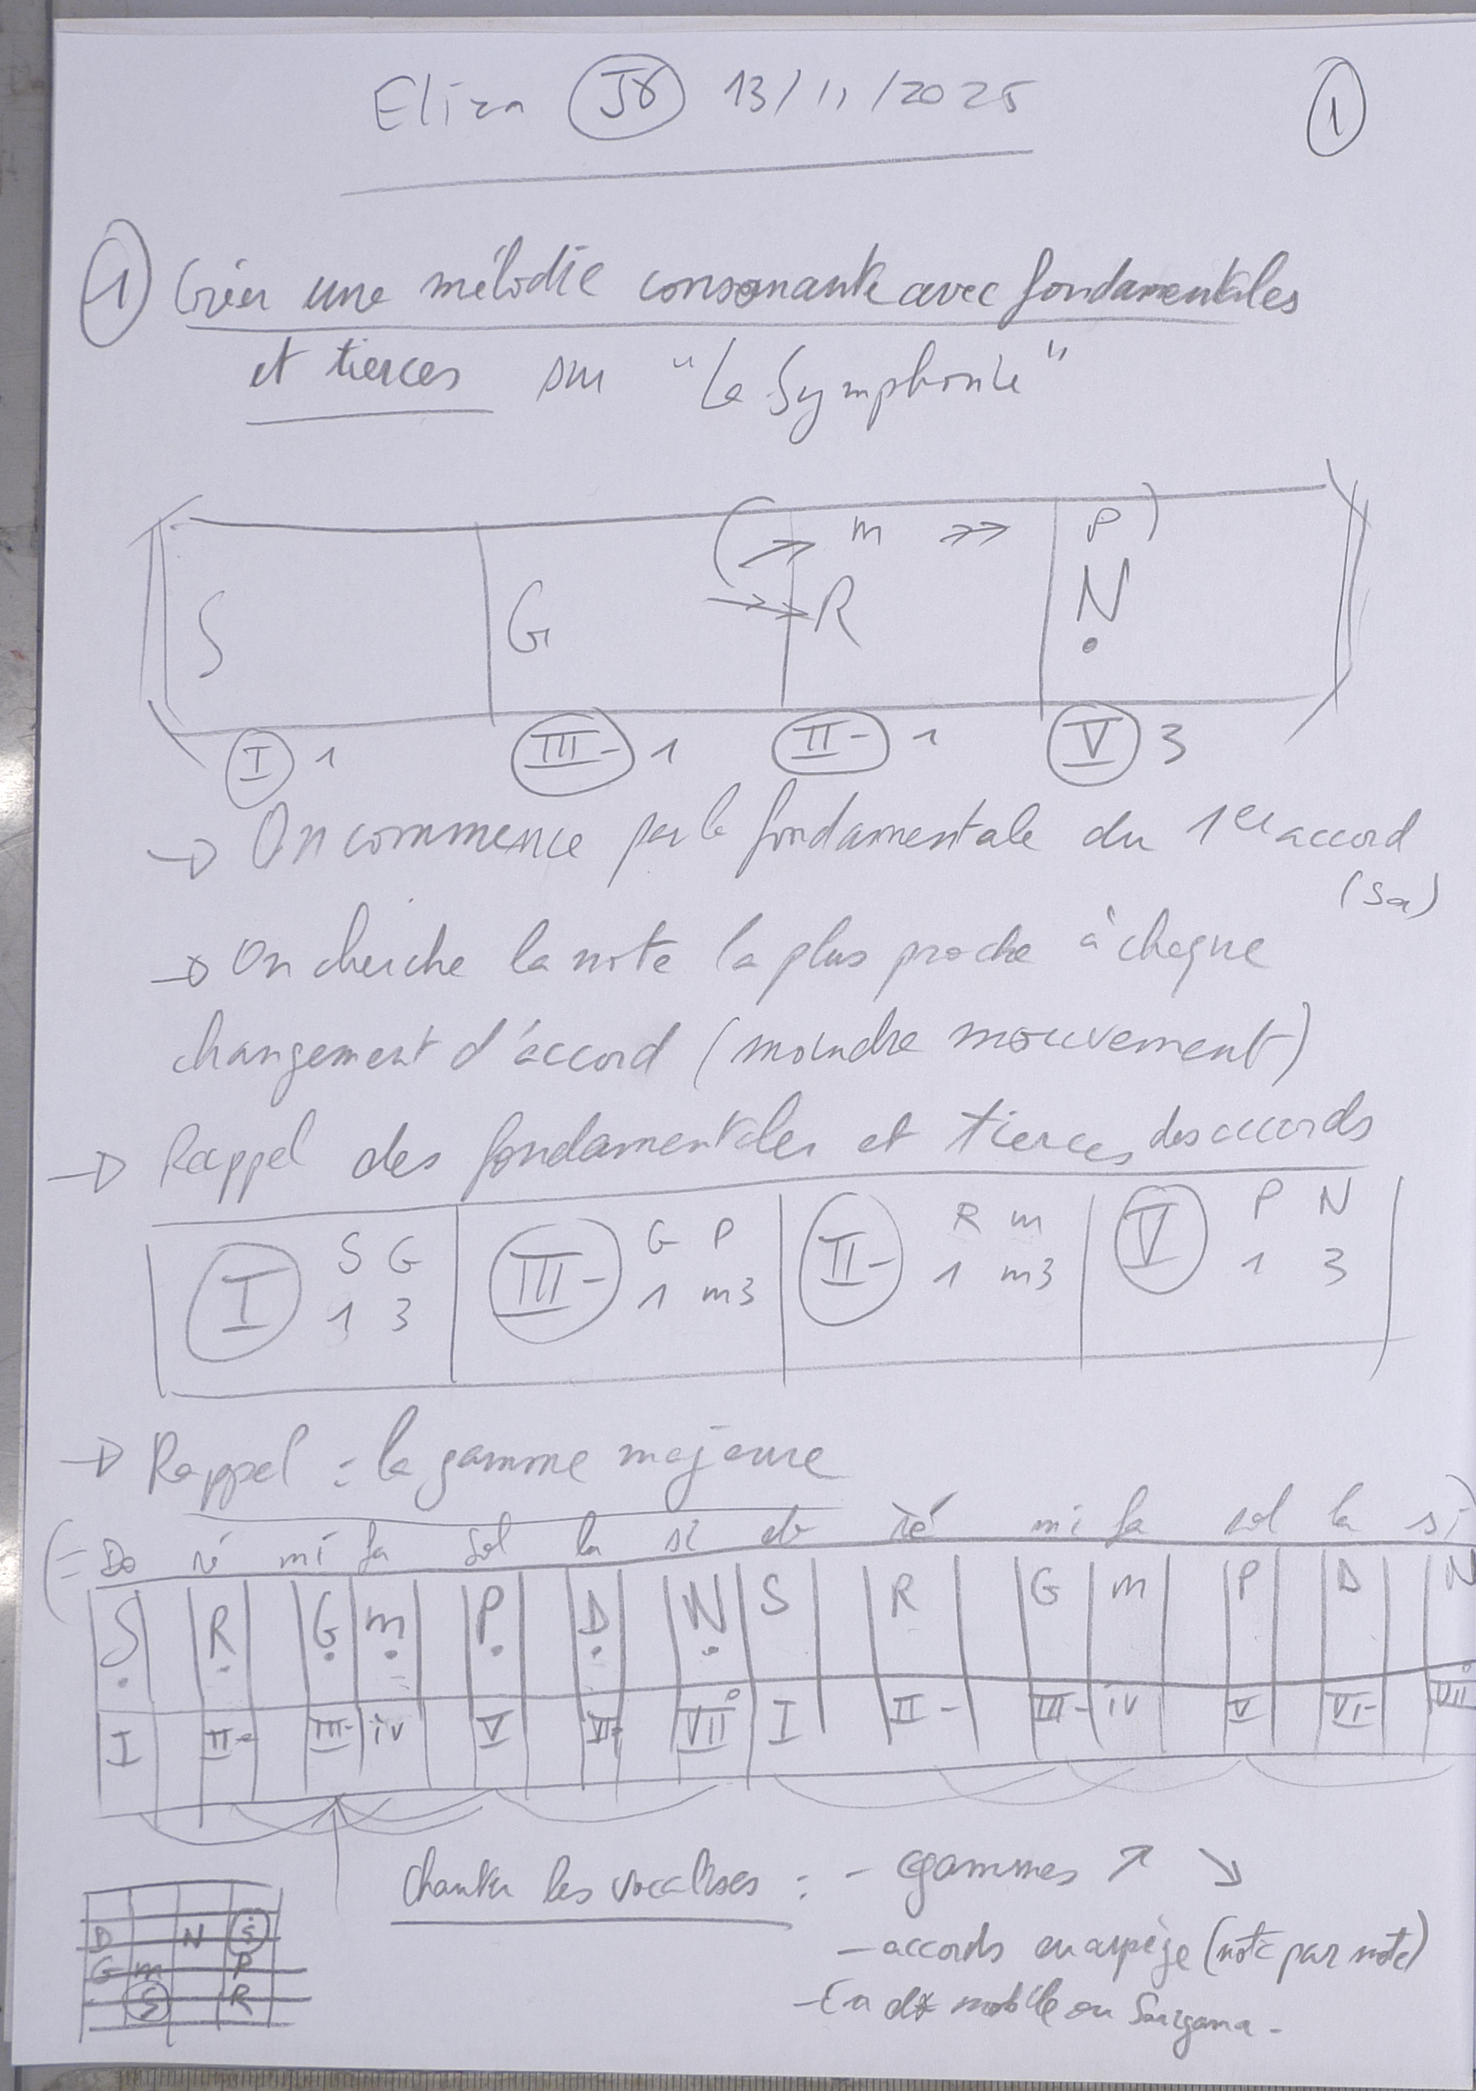 Eliza J8 13/11/2025
1
1 Créer une mélodie consonante avec fondamentales
et tierces sur "La Symphonie"
( m P )
S G R Ṇ
I 1 III- 1 II- 1 V 3
→ On commence par la fondamentale du 1er accord
(Sa)
→ On cherche la note la plus proche à chaque
changement d'accord (moindre mouvement)
→ Rappel des fondamentales et tierces des accords
I S G III- G P II- R m V P N
1 3 1 m3 1 m3 1 3
→ Rappel : la gamme majeure
(= Do ré mi fa sol la si do ré mi fa sol la si)
Ṣ Ṛ G̣ ṃ P̣ Ḍ Ṇ S R G m P D N
I II- III- iv V VI- VII° I II- III- iv V VI- VII°
chanter les vocalises : - gammes ↗ ↘
- accords en arpège (note par note)
- En do mobile ou Sargama -
D N Ṡ
G m P
S R